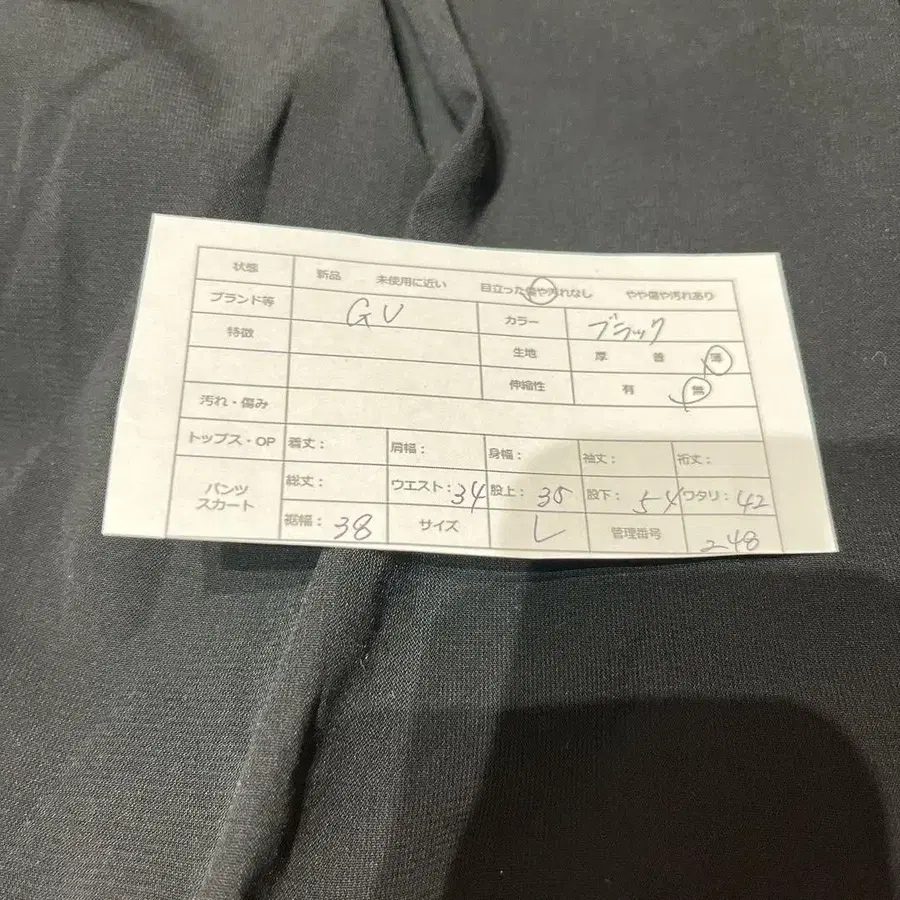 状態 新品 未使用に近い 目立った傷や汚れなし やや傷や汚れあり
ブランド等 GU カラー ブラック
特徴 生地 厚 普 薄
伸縮性 有 無
汚れ・傷み
トップス・OP 着丈: 肩幅: 身幅: 袖丈: 裄丈:
パンツ スカート 総丈: ウエスト:34 股上:35 股下:54 ワタリ:42
裾幅:38 サイズ L 管理番号 248